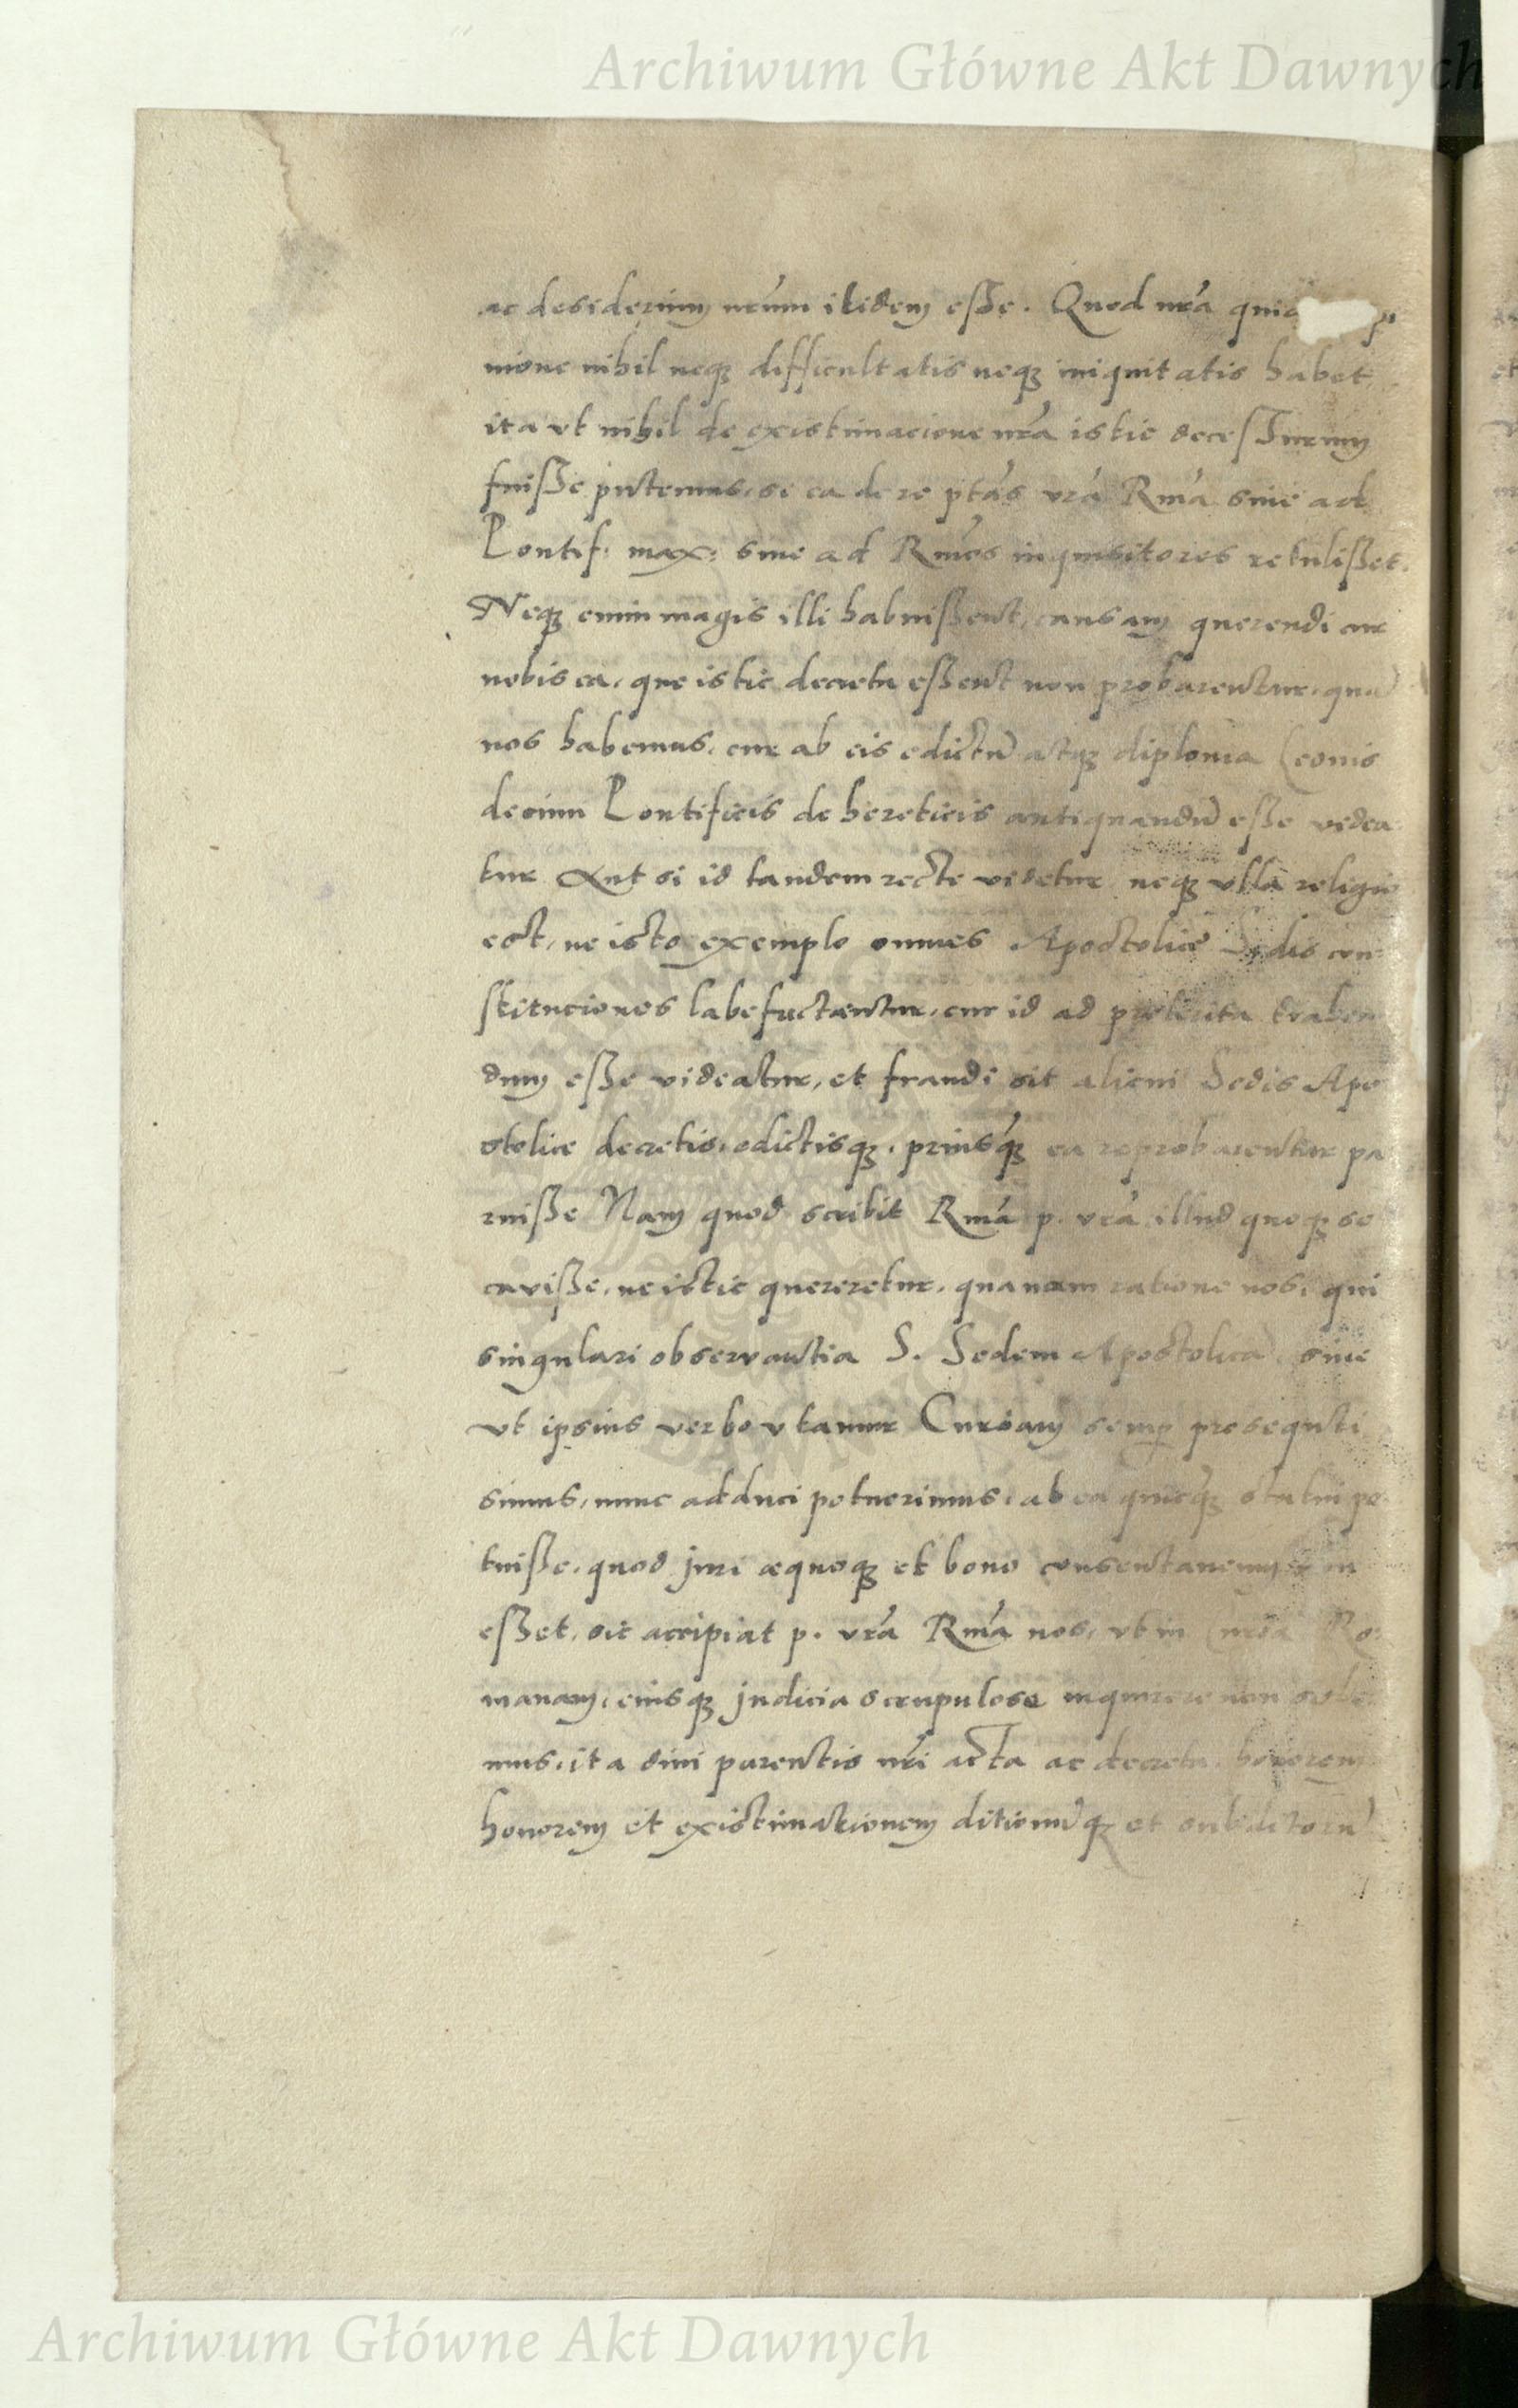 Archiwum Główne Akt Dawnych
ac desiderium nrũm itidem esse. Quod nrã
nione nihil neq3 difficultatis neq3 iniquitatis habet
ita vt nihil de existimacione nrã istic decessurum
fuisse putemus, si ea de re ptãs vrã Rmã siue ad
Pontif: max: siue ad Rmõs inquisitores retulisset.
Neq3 enim magis illi habuissent, causam querendi cur
nobis ea, que istic decreta essent non probarentur, quã
nos habemus, cur ab eis edictũ atq3 diploma Leonis
decimi Pontificis de hereticis antiquandũ esse videa
tur Aut si id tandem recte videtur neq3 vlla religio
est, ne isto exemplo omnes Apostolice Sedis con
stituciones labefactentur, cur id ad preterita trahen
dum esse videatur, et fraudi sit alicui Sedis Apo
stolice decretis, edictisq3, priusq̃3 ea reprobarentur pa
ruisse Nam quod scribit Rmã p. vrã illud quoq3 se
cavisse, ne istic quereretur, quanam ratione nos, qui
singulari observantia S. Sedem Apostolicã, siue
vt ipsius verbo vtamur Curiam semp̃ prosequuti
simus, nunc adduci potuerimus, ab ea quicq̃3 statui po
tuisse, quod juri æquoq3 et bono consentaneum non
esset, sic accipiat p. vrã Rmã nos, vt in Curiã Ro
manam, eiusq3 judicia scrupulose inquirere non sole
mus, ita diui parentis nrĩ acta ac decreta, honorem
honorem et existimationem ditionũq3 et subditorũ
Archiwum Główne Akt Dawnych